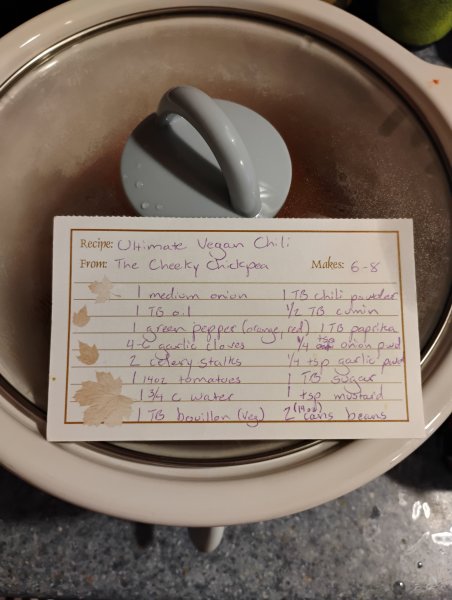 Recipe: Ultimate Vegan Chili
From: The Cheeky Chickpea Makes: 6-8
1 medium onion 1 TB chili powder
1 TB oil 1/2 TB cumin
1 green pepper (orange, red) 1 TB paprika
4-6 garlic cloves 1/4 tsp onion pwd
2 celery stalks 1/4 tsp garlic pwd
1 14oz tomatoes 1 TB sugar
1 3/4 c water 1 tsp mustard
1 TB bouillon (veg) 2 (14oz) cans beans